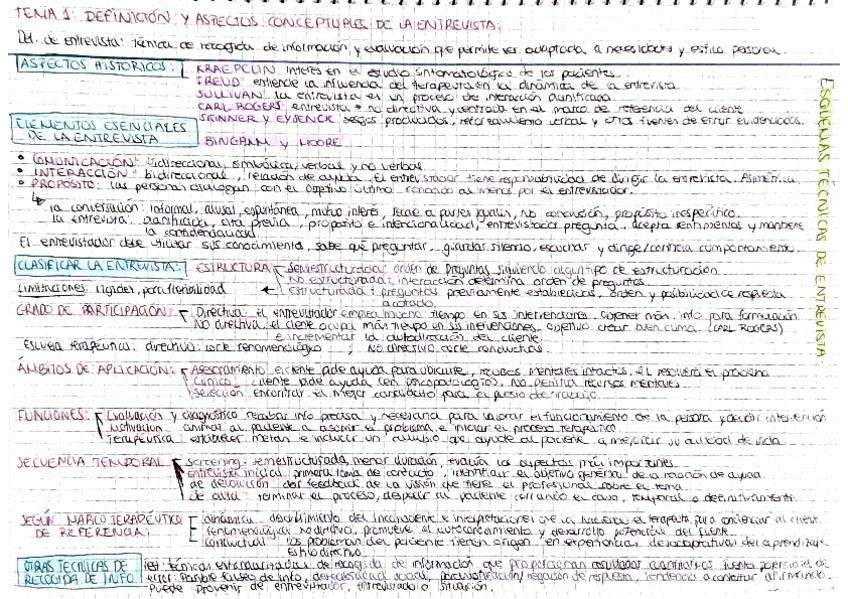 TEMA 1: DEFINICIÓN Y ASPECTOS CONCEPTUALES DE LA ENTREVISTA:
Def. de entrevista: técnica de recogida de información, y evaluación que permite ser adaptada a necesidades y estilo personal.
ASPECTOS HISTÓRICOS: KRAEPELIN interés en el estudio sintomatológico de los pacientes.
FREUD entiende la influencia del terapeuta en la dinámica de la entrevista
SULLIVAN la entrevista es un proceso de interacción planificada.
CARL ROGERS entrevista no directiva y centrada en el marco de referencia del cliente
SKINNER Y EYSENCK sesgos producidos, reforzamiento verbal y otras fuentes de error evidenciados.
ELEMENTOS ESENCIALES DE LA ENTREVISTA
BINGHAM Y MOORE
• COMUNICACIÓN: bidireccional, simbólica, verbal y no verbal
• INTERACCIÓN: bidireccional, relación de ayuda. El entrevistador tiene responsabilidad de dirigir la entrevista. Asimétrica.
• PROPÓSITO: las personas dialogan con el objetivo último conocido al menos por el entrevistador.
La conversación: informal, casual, espontánea, mutuo interés, recae a partes iguales, no conclusión, propósito inespecífico.
La entrevista: planificada, cita previa, propósito e intencionalidad, entrevistador pregunta, acepta sentimientos y mantiene
la confidencialidad
El entrevistador debe utilizar sus conocimientos, sabe qué preguntar, guardar silencio, escuchar y dirige/controla comportamiento.
CLASIFICAR LA ENTREVISTA: ESTRUCTURA semiestructurada: orden de preguntas siguiendo algún tipo de estructuración
no estructurada: interacción determina orden de preguntas
Limitaciones: rigidez, poca flexibilidad estructurada: preguntas previamente establecidas, orden y posibilidad de respuesta
acotado.
GRADO DE PARTICIPACIÓN: Directiva: el entrevistador emplea mucho tiempo en sus intervenciones. Obtener más info para formulación
NO directiva: el cliente ocupa más tiempo en sus intervenciones, objetivo: crear buen clima (CARL ROGERS)
e incrementar la autodirección del cliente.
Escuela terapéutica: directiva: corte fenomenológico ; No directivo: corte conductual.
ÁMBITOS DE APLICACIÓN: Asesoramiento: el cliente pide ayuda para ubicarse, recursos mentales intactos. Él resolverá el problema
Clínico: cliente pide ayuda (con psicopatologías), no penitud recursos mentales
Selección: encontrar el mejor candidato para el puesto de trabajo.
FUNCIONES: Evaluación y diagnóstico: recabar info precisa y necesaria para valorar el funcionamiento de la persona y decidir intervención
Motivación: animar al paciente a asumir el problema e iniciar el proceso terapéutico
Terapéutica: establecer metas e inducir un cambio que ayude al paciente a mejorar su calidad de vida.
SECUENCIA TEMPORAL Screening: semiestructurada, menor duración, evalúa los aspectos más importantes
entrevista inicial: primera toma de contacto, identificar el objetivo general de la relación de ayuda.
de devolución: dar feedback de la visión que tiene el profesional sobre el tema.
de alta: terminar el proceso, despedir al paciente cerrando el caso, temporal o definitivamente.
SEGÚN MARCO TERAPÉUTICO DE REFERENCIA: dinámica: descubrimiento del inconsciente e interpretaciones que va haciendo el terapeuta para concienciar al client.
fenomenológica: No directivo, promueve el autoconocimiento y desarrollo potencial del cliente.
Conductual: los problemas del paciente tienen origen en experiencias desadaptativas del aprendizaje.
Estilo directivo.
OTRAS TÉCNICAS DE RECOGIDA DE INFO test: técnicas estandarizadas de recogida de información que proporcionan resultados cuantitativos. fuente potencial de
error: Posible falseo de info, deseabilidad social, negación de respuesta, tendencia a contestar afirmando.
Puede provenir de entrevistador, entrevistado o situación.
ESQUEMAS TÉCNICAS DE ENTREVISTA